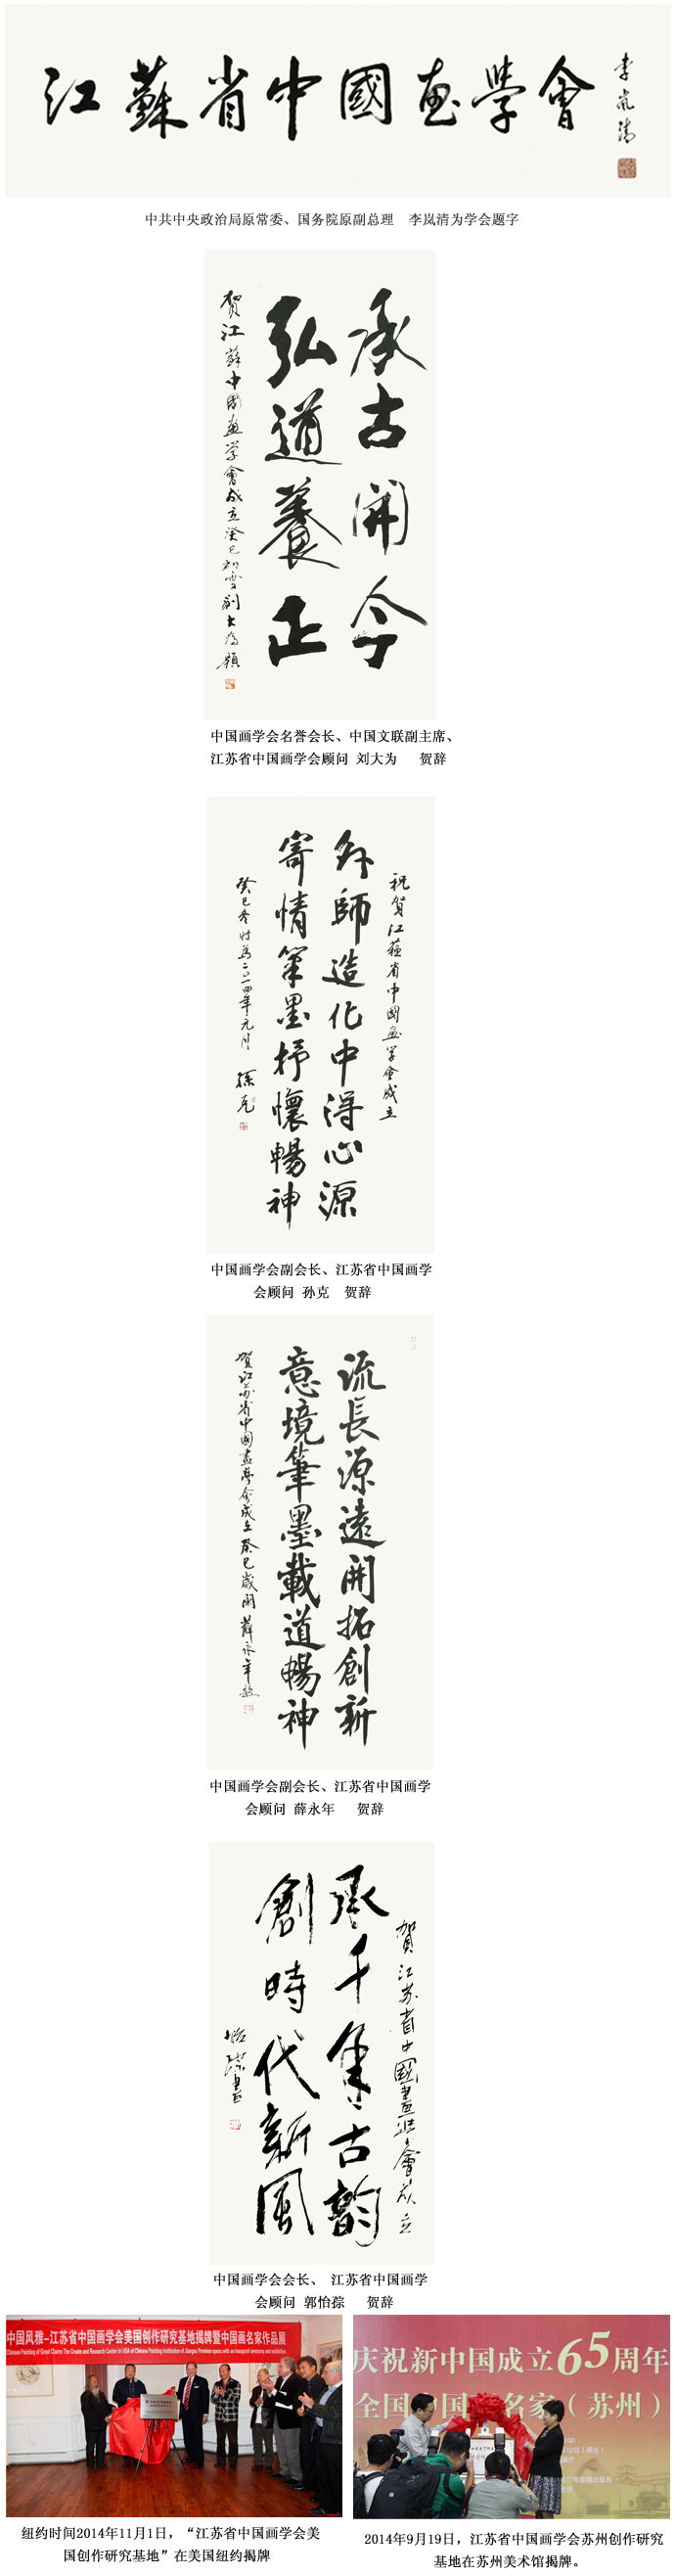 江蘇省中國画學會
李岚清
中共中央政治局原常委、国务院原副总理　李岚清为学会题字
承古開今
弘道養正
贺江蘇中國画学會成立癸巳初雪刘大为题
中国画学会名誉会长、中国文联副主席、
江苏省中国画学会顾问 刘大为　贺辞
祝贺江蘇省中國画学会成立
外師造化中得心源
寄情筆墨抒懷暢神
癸巳冬时为二〇一四年元月 孫克
中国画学会副会长、江苏省中国画学
会顾问 孙克　贺辞
流長源遠開拓創新
意境筆墨載道暢神
贺江苏省中国画学会成立癸巳歲闌薛永年题
中国画学会副会长、江苏省中国画学
会顾问 薛永年　贺辞
賀江苏省中國畫學會成立
承千年古韵
創時代新風
怡孮書
中国画学会会长、 江苏省中国画学
会顾问 郭怡孮　贺辞
中国风雅-江苏省中国画学会美国创作研究基地揭牌暨中国画名家作品展
Chinese Painting of Great Charm The Create and Research Center in USA of Chinese Painting Institution of Jiangsu Province opens with an inaugural ceremony and exhibition
庆祝新中国成立65周年
全国中国画名家（苏州）
纽约时间2014年11月1日，“江苏省中国画学会美
国创作研究基地”在美国纽约揭牌
2014年9月19日，江苏省中国画学会苏州创作研究
基地在苏州美术馆揭牌。